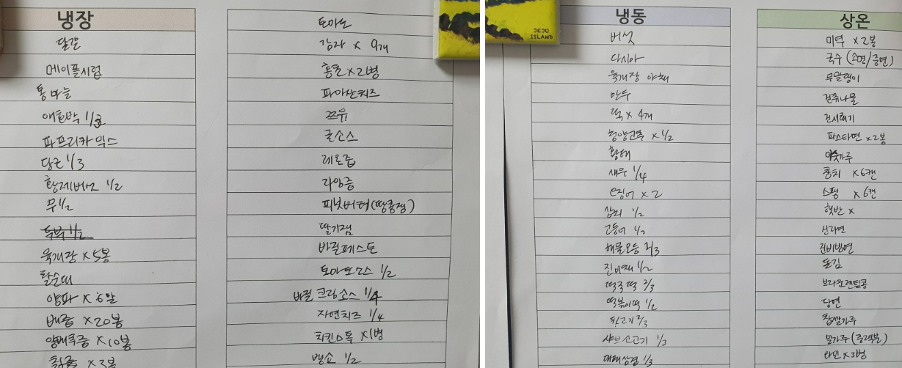 냉장
달걀
메이플시럽
통마늘
애호박 1/3
파프리카 믹스
당근 1/3
황제버섯 1/2
무 1/2
두부 1/2
육개장 x 5봉
탈순대
양파 x 6알
배즙 x 20봉
양배추즙 x 10봉
칡즙 x 3봉
토마토
감자 x 9개
홍초 x 2병
파마산치즈
쯔유
굴소스
레몬즙
라임즙
피넛버터(땅콩잼)
딸기잼
바질페스토
토마토소스 1/2
바질 크림소스 1/4
자연치즈 1/4
치킨스톡 x 1병
쌈소 1/2
JEJU
ISLAND
냉동
버섯
다시마
육개장 야채
만두
떡 x 4개
청양고추 x 1/2
황태
새우 1/4
오징어 x 2
삼치 1/2
고등어 1/2
해물모듬 2/3
진비빔 1/2
떡국떡 2/3
떡볶이떡 1/2
불고기 2/3
샤브소고기 1/3
대패삼겹 1/3
상온
미역 x 2봉
국수 (소면/중면)
무말랭이
건취나물
건시래기
파스타면 x 2봉
부침가루
참치 x 6캔
스팸 x 6캔
햇반 x
신라면
진비빔면
튀김
당면
찹쌀가루
밀가루 (중력분)